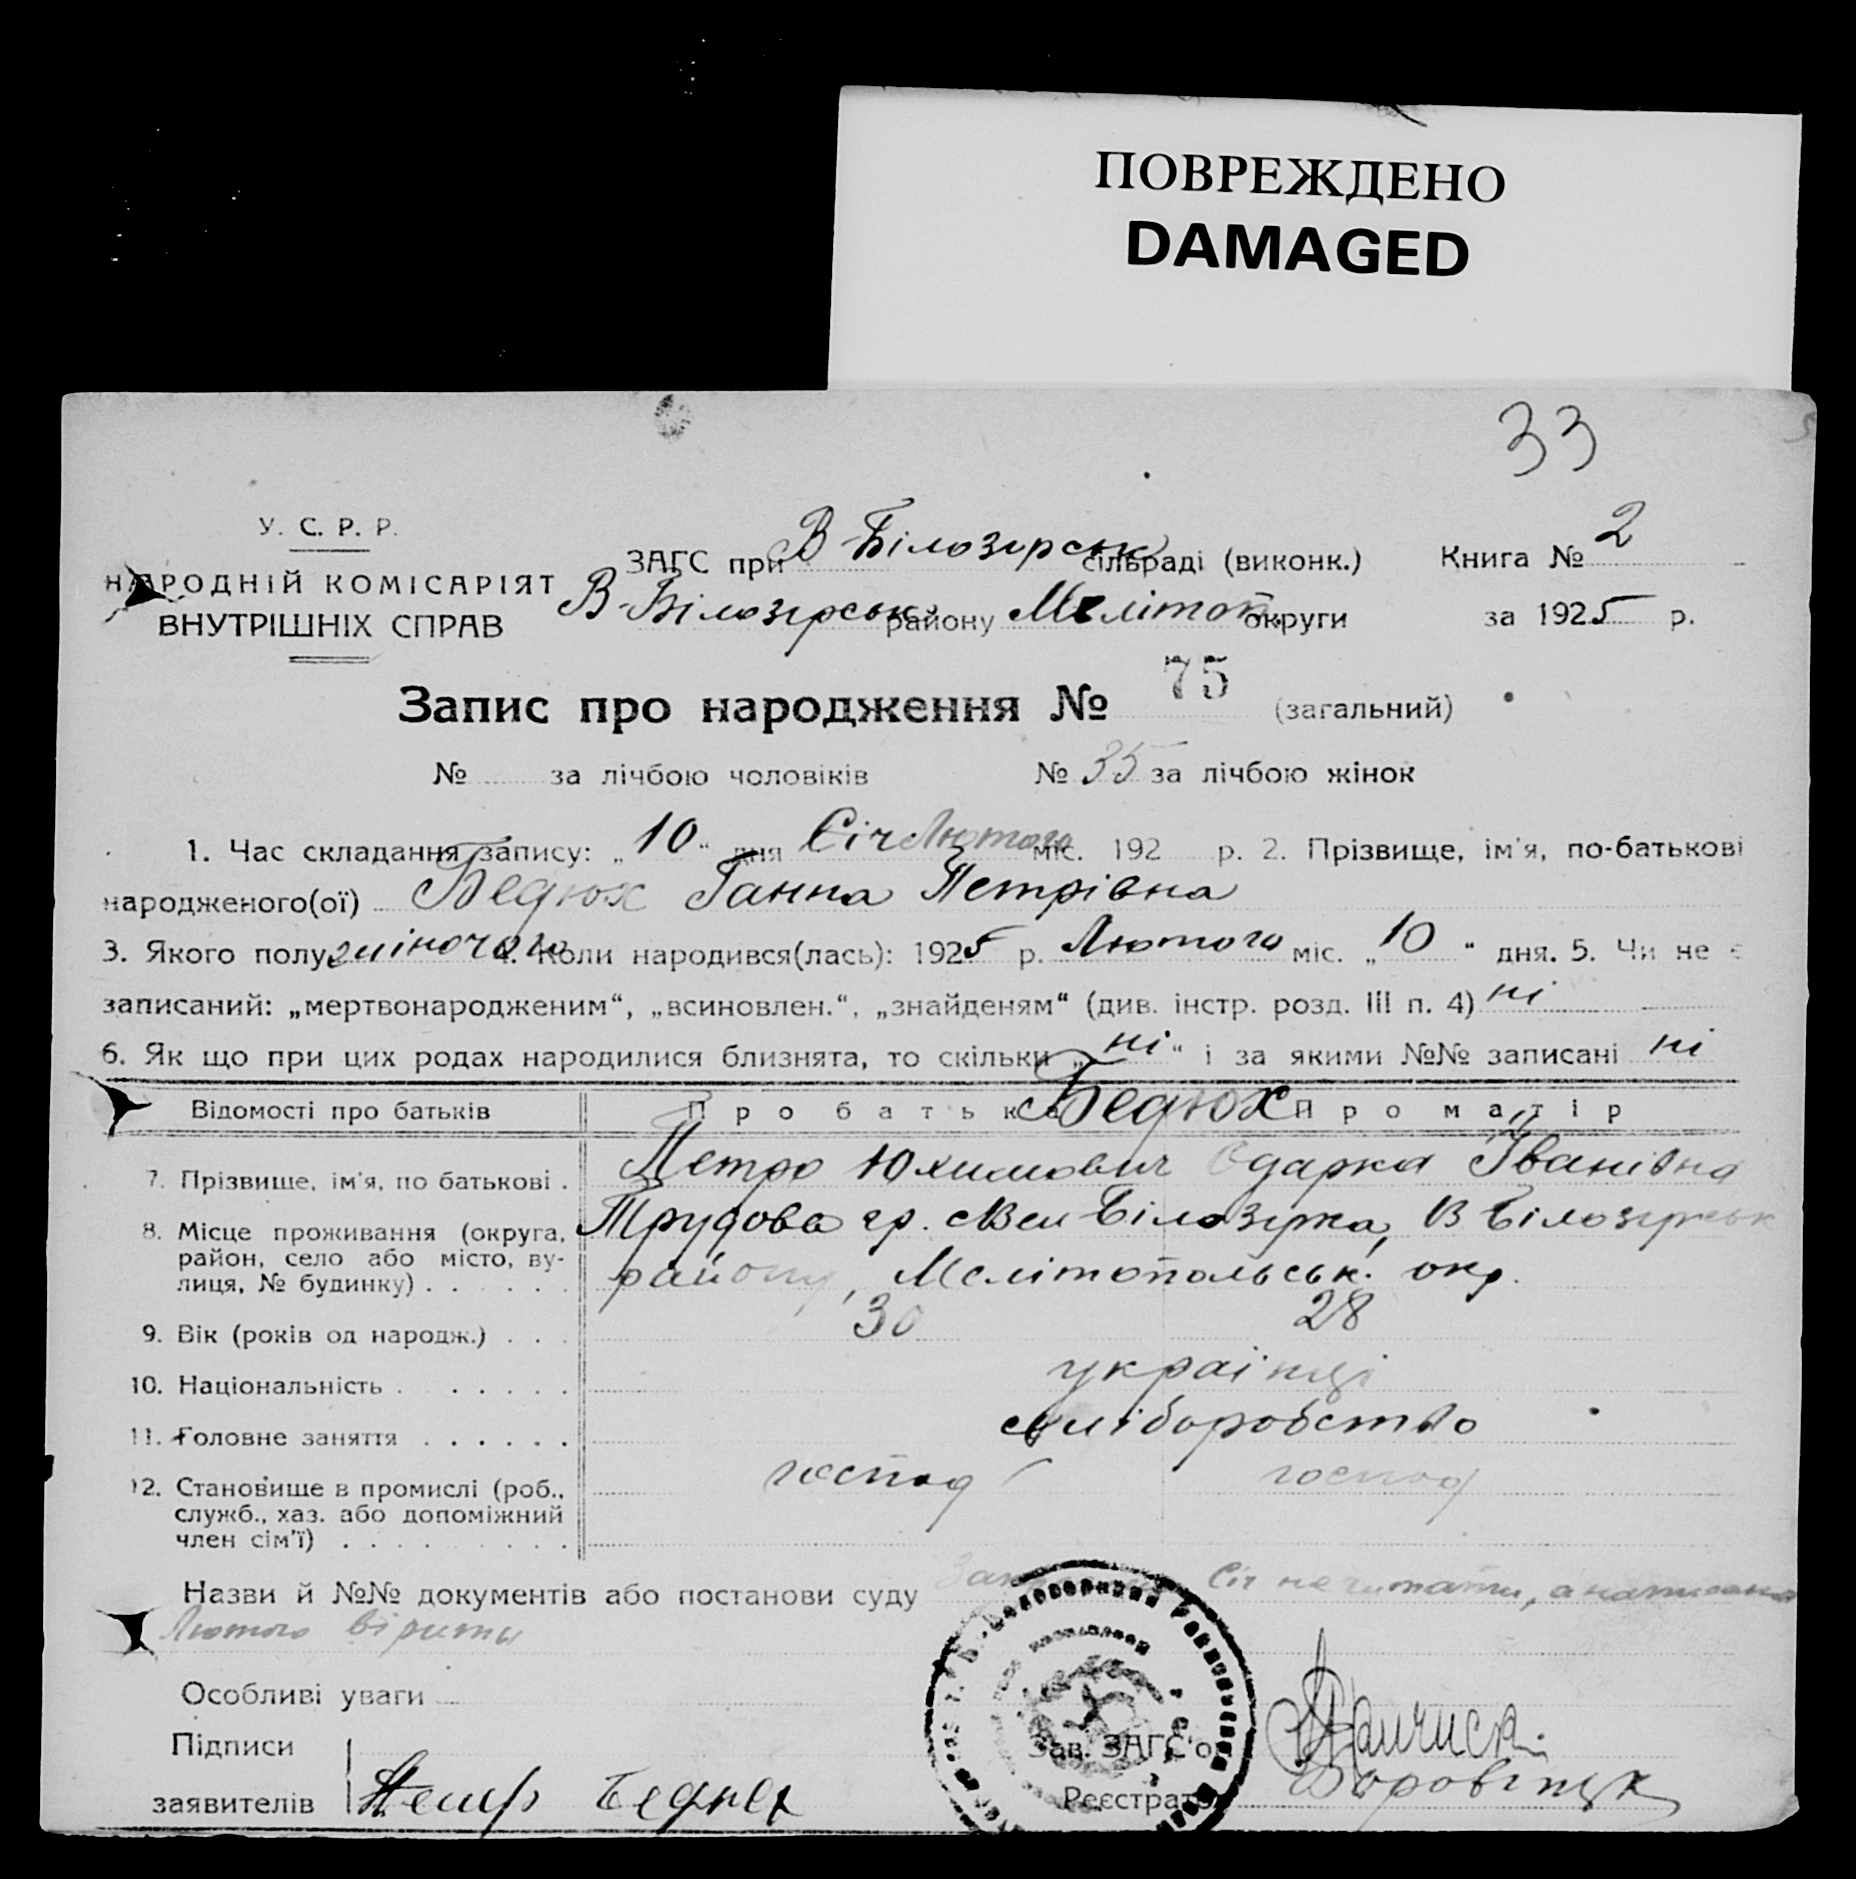 ПОВРЕЖДЕНО
DAMAGED
33
У. С. Р. Р.
НАРОДНІЙ КОМІСАРІЯТ
ВНУТРІШНІХ СПРАВ
ЗАГС при В-Білозірськ сільраді (виконк.) Книга № 2
В-Білозірськ. району Мелітоп. округи за 1925 р.
Запис про народження № 75 (загальний)
№ за лічбою чоловіків № 35 за лічбою жінок
1. Час складання запису: „10“ дня Січ Лютого міс. 192 р. 2. Прізвище, ім'я, по-батькові
народженого(ої) Бедюх Ганна Петрівна
3. Якого полу жіночого 4. Коли народився(лась): 1925 р. Лютого міс. „10“ дня. 5. Чи не є
записаний: „мертвонародженим“, „всиновлен.“, „знайденям“ (див. інстр. розд. III п. 4) ні
6. Як що при цих родах народилися близнята, то скільки „ні“ і за якими №№ записані ні
Відомості про батьків Про батька Бедюх Про матір
7. Прізвище, ім'я, по батькові . Петро Юхимович Одарка Іванівна
8. Місце проживання (округа, район, село або місто, вулиця, № будинку) . . . . . . Трудова гр. с Вел Білозірка, В Білозірськ
району, Мелітопольськ. окр.
9. Вік (років од народж.) . . . 30 28
10. Національність . . . . . . українці
11. Головне заняття . . . . . . хліборобство
12. Становище в промислі (роб., служб., хаз. або допоміжний член сім'ї) . . . . . . . . . господ господ
Назви й №№ документів або постанови суду Січ не читати, а написано
Лютого вірити
Особливі уваги
Підписи
заявителів Петр Бедюх
Зав. ЗАГС'ом
Реєстратор